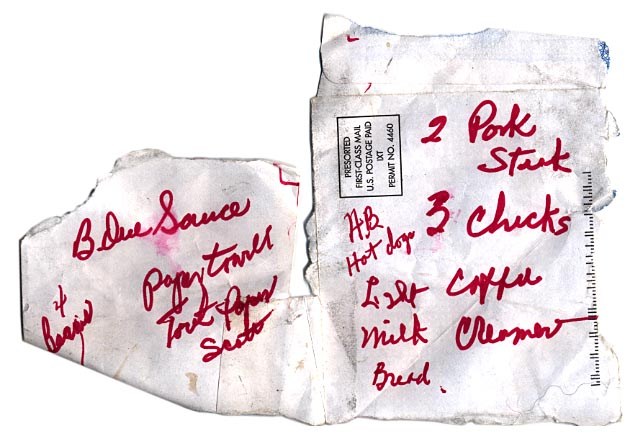 B Que Sauce
Paper towells
Toilt Paper
Scott
4
PRESORTED
FIRST-CLASS MAIL
U.S. POSTAGE PAID
IXT
PERMIT NO. 4460
2 Pork
Steak
HB
Hot dogs
3 Chicks
Light Coffee
Milk Creamer
Bread.